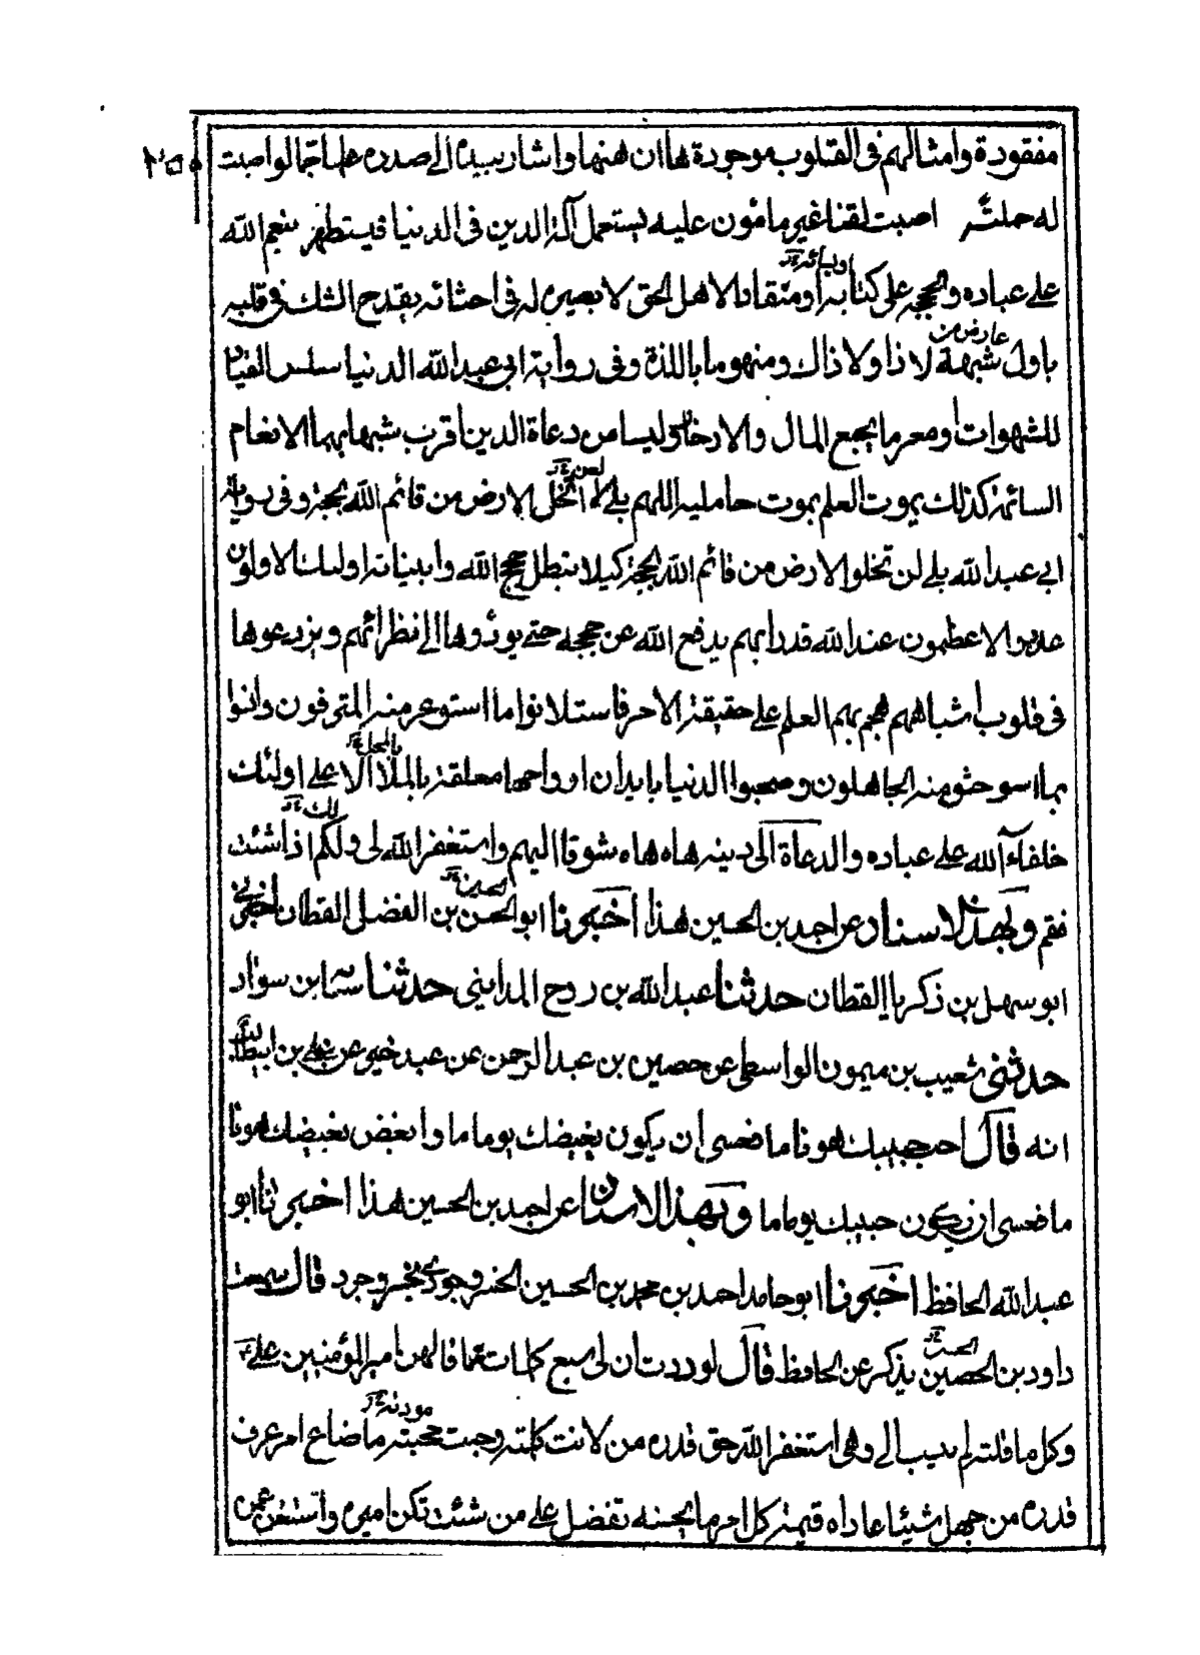 مفقودة وامثالهم فى القلوب موجودة ها ان ههنا واشار بيده الى صدره علما جما لو اصبت
له حملة اصبت لقنا غير مامون عليه يستعمل آلة الدين فى الدنيا فيستظهر بنعم الله
على عباده وبحججه على كتابه او منقادا لاهل الحق لا بصيرة له فى احنائه يقدح الشك فى قلبه
عارض من
باول شبهة لا ذا ولا ذاك ومنهوما باللذة وفى رواية ابى عبد الله الدنيا سلس القياد
للشهوات او مغرما بجمع المال والادخار وليسا من دعاة الدين اقرب شبها بهما الانعام
السائمة كذلك يموت العلم بموت حامليه اللهم بلى لا تخل الارض من قائم الله بحجة وفى رواية
ابى عبد الله بلى لن تخلو الارض من قائم الله بحجة كيلا تبطل حجج الله وابيناته اولئك الاولون
عددا الاعظمون عند الله قدرا بهم يدفع الله عن حججه حتى يودوها الى نظرائهم ويزدعوها
فى قلوب اشباههم هجم بهم العلم على حقيقة الامر فاستلانوا ما استوعر منه المترفون وانوا
بما اسوحثو منه الجاهلون وصحبوا الدنيا بابدان ارواحها معلقة بالملأ الاعلى اولئك
بالمحل
خلفاء الله على عباده والدعاة الى دينه هاه هاه شوقا اليهم واستغفر الله لى ولكم اذا شئت
لك
فقم وبهذا الاسناد عن احمد بن الحسين هذا اخبرنا ابو الحسن بن الفضل القطان اخبرنى
الحسين
ابو سهل بن زكريا القطان حدثنا عبد الله بن روح المداينى حدثنا شبابن سوار
حدثنى شعيب بن ميمون الواسطى عن حصين بن عبد الرحمن عن عبد خير عن على بن ابيطالب
انه قال احب حبيبك هونا ما عسى ان يكون بغيضك يوما ما وابغض بغيضك هونا
ما عسى ان يكون حبيبك يوما ما وبهذا الاسناد عن احمد بن الحسين هذا اخبرنا ابو
عبد الله الحافظ اخبرنا ابو حامد احمد بن محمد بن الحسين الخسروجردى بخسروجرد قال سمعت
داود بن الحصين يذكر عن الحافظ قال لوددت ان لى سبع كلمات مما قالهن امير المؤمنين على
وكل ما قلته لم ينسب الى وهى استغفر الله حق قدره من لانت كلمته وجبت محبته ما ضاع امر عرف
مودته
قدره من جهل شيئا عاداه قيمة كل امرء ما يحسنه تفضل على من شئت تكن اميره واستغن عمن